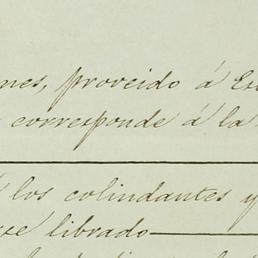 nes, proveido á Es
corresponde á la
á los colindantes y
ue librado